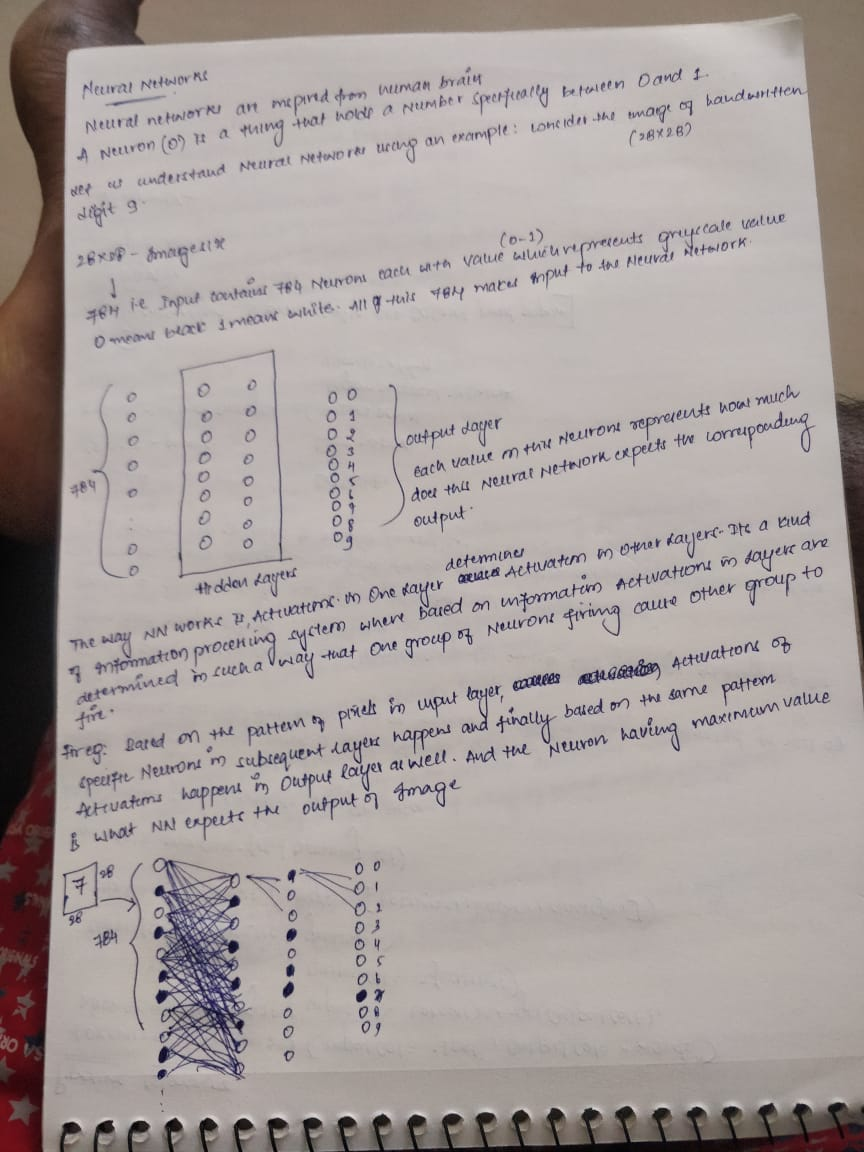 Neural Networks
Neural networks are inspired from human brain
A Neuron (0) is a thing that holds a Number specifically between 0 and 1.
Let us understand Neural Networks using an example: consider the image of handwritten
digit 9.
(28x28)
28x28 - Image size
↓
(0-1)
784 i.e Input contains 784 Neurons each with value which represents greyscale value
0 means black 1 means white. All of this 784 makes input to the Neural Network.
784
0
1
2
3
4
5
6
7
8
9
Output Layer
each value in this Neurons represents how much
does this Neural Network expects the corresponding
output.
Hidden Layers
determines
The way NN works is, Activations in One layer Activation in other layers. Its a kind
of information processing system where based on information Activations in layers are
determined in such a way that one group of Neurons firing cause other group to
fire.
for eg: Based on the pattern of pixels in input layer, Activations of
specific Neurons in subsequent layers happens and finally based on the same pattern
Activations happens in Output layer as well. And the Neuron having maximum value
is what NN expects the output of Image
7
28
28
784
0
1
2
3
4
5
6
7
8
9